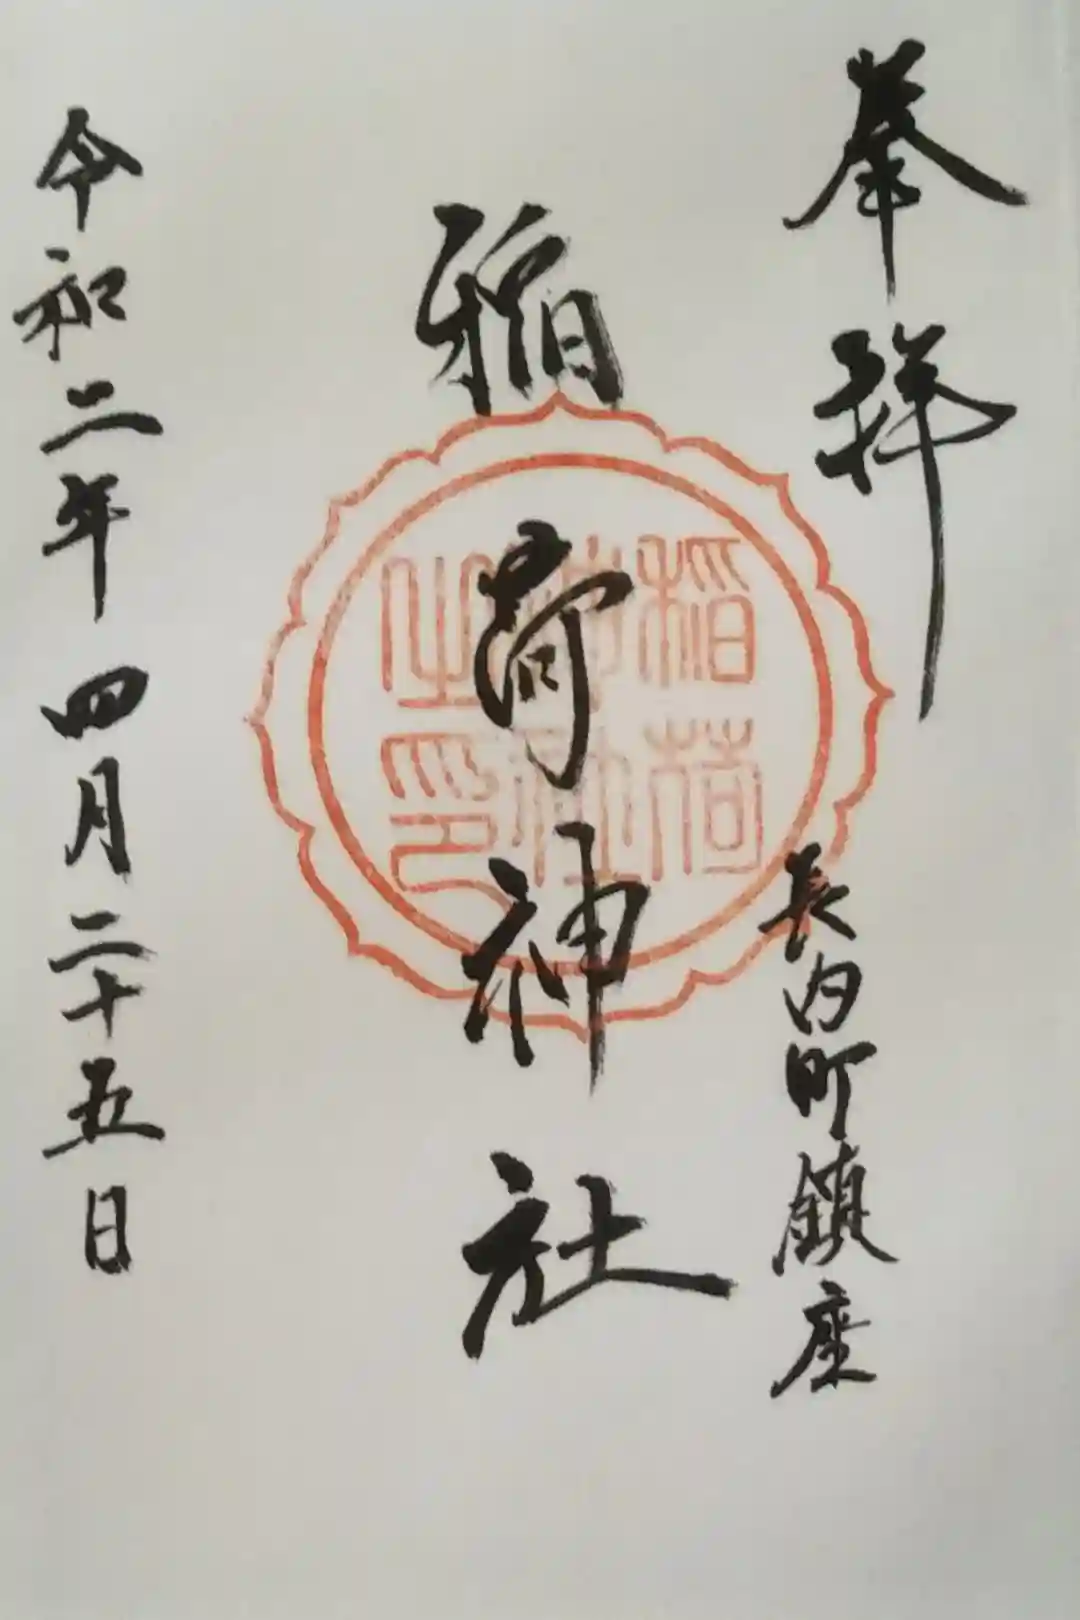 奉拝
長内町鎮座
稲荷神社
稲荷神社之印
令和二年四月二十五日